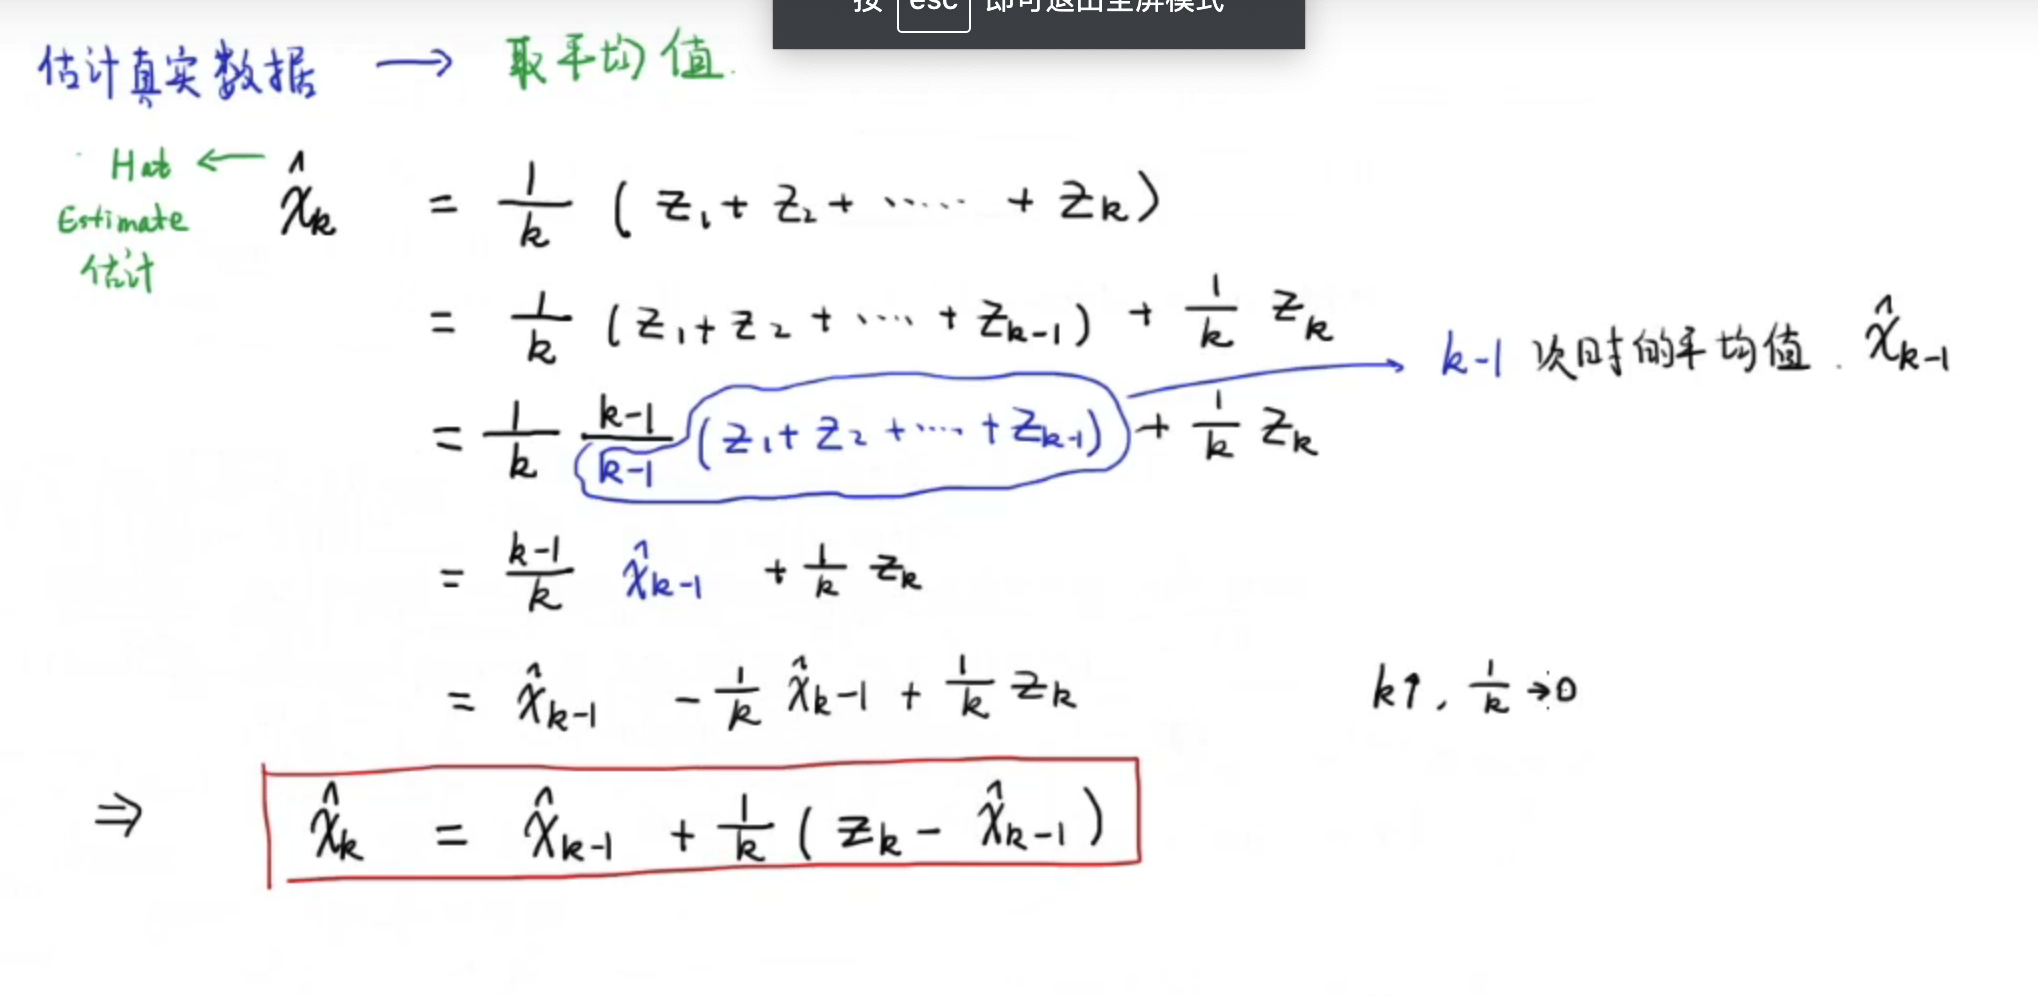 按 esc 即可退出全屏模式
估计真实数据 → 取平均值.
Hat ← x̂ₖ = 1/k ( z₁ + z₂ + ⋯⋯ + zₖ )
Estimate
估计
= 1/k ( z₁ + z₂ + ⋯⋯ + zₖ₋₁ ) + 1/k zₖ
→ k-1 次时的平均值. x̂ₖ₋₁
= 1/k (k-1)/(k-1) ( z₁ + z₂ + ⋯⋯ + zₖ₋₁ ) + 1/k zₖ
= (k-1)/k x̂ₖ₋₁ + 1/k zₖ
= x̂ₖ₋₁ - 1/k x̂ₖ₋₁ + 1/k zₖ
k↑, 1/k → 0
⇒ x̂ₖ = x̂ₖ₋₁ + 1/k ( zₖ - x̂ₖ₋₁ )